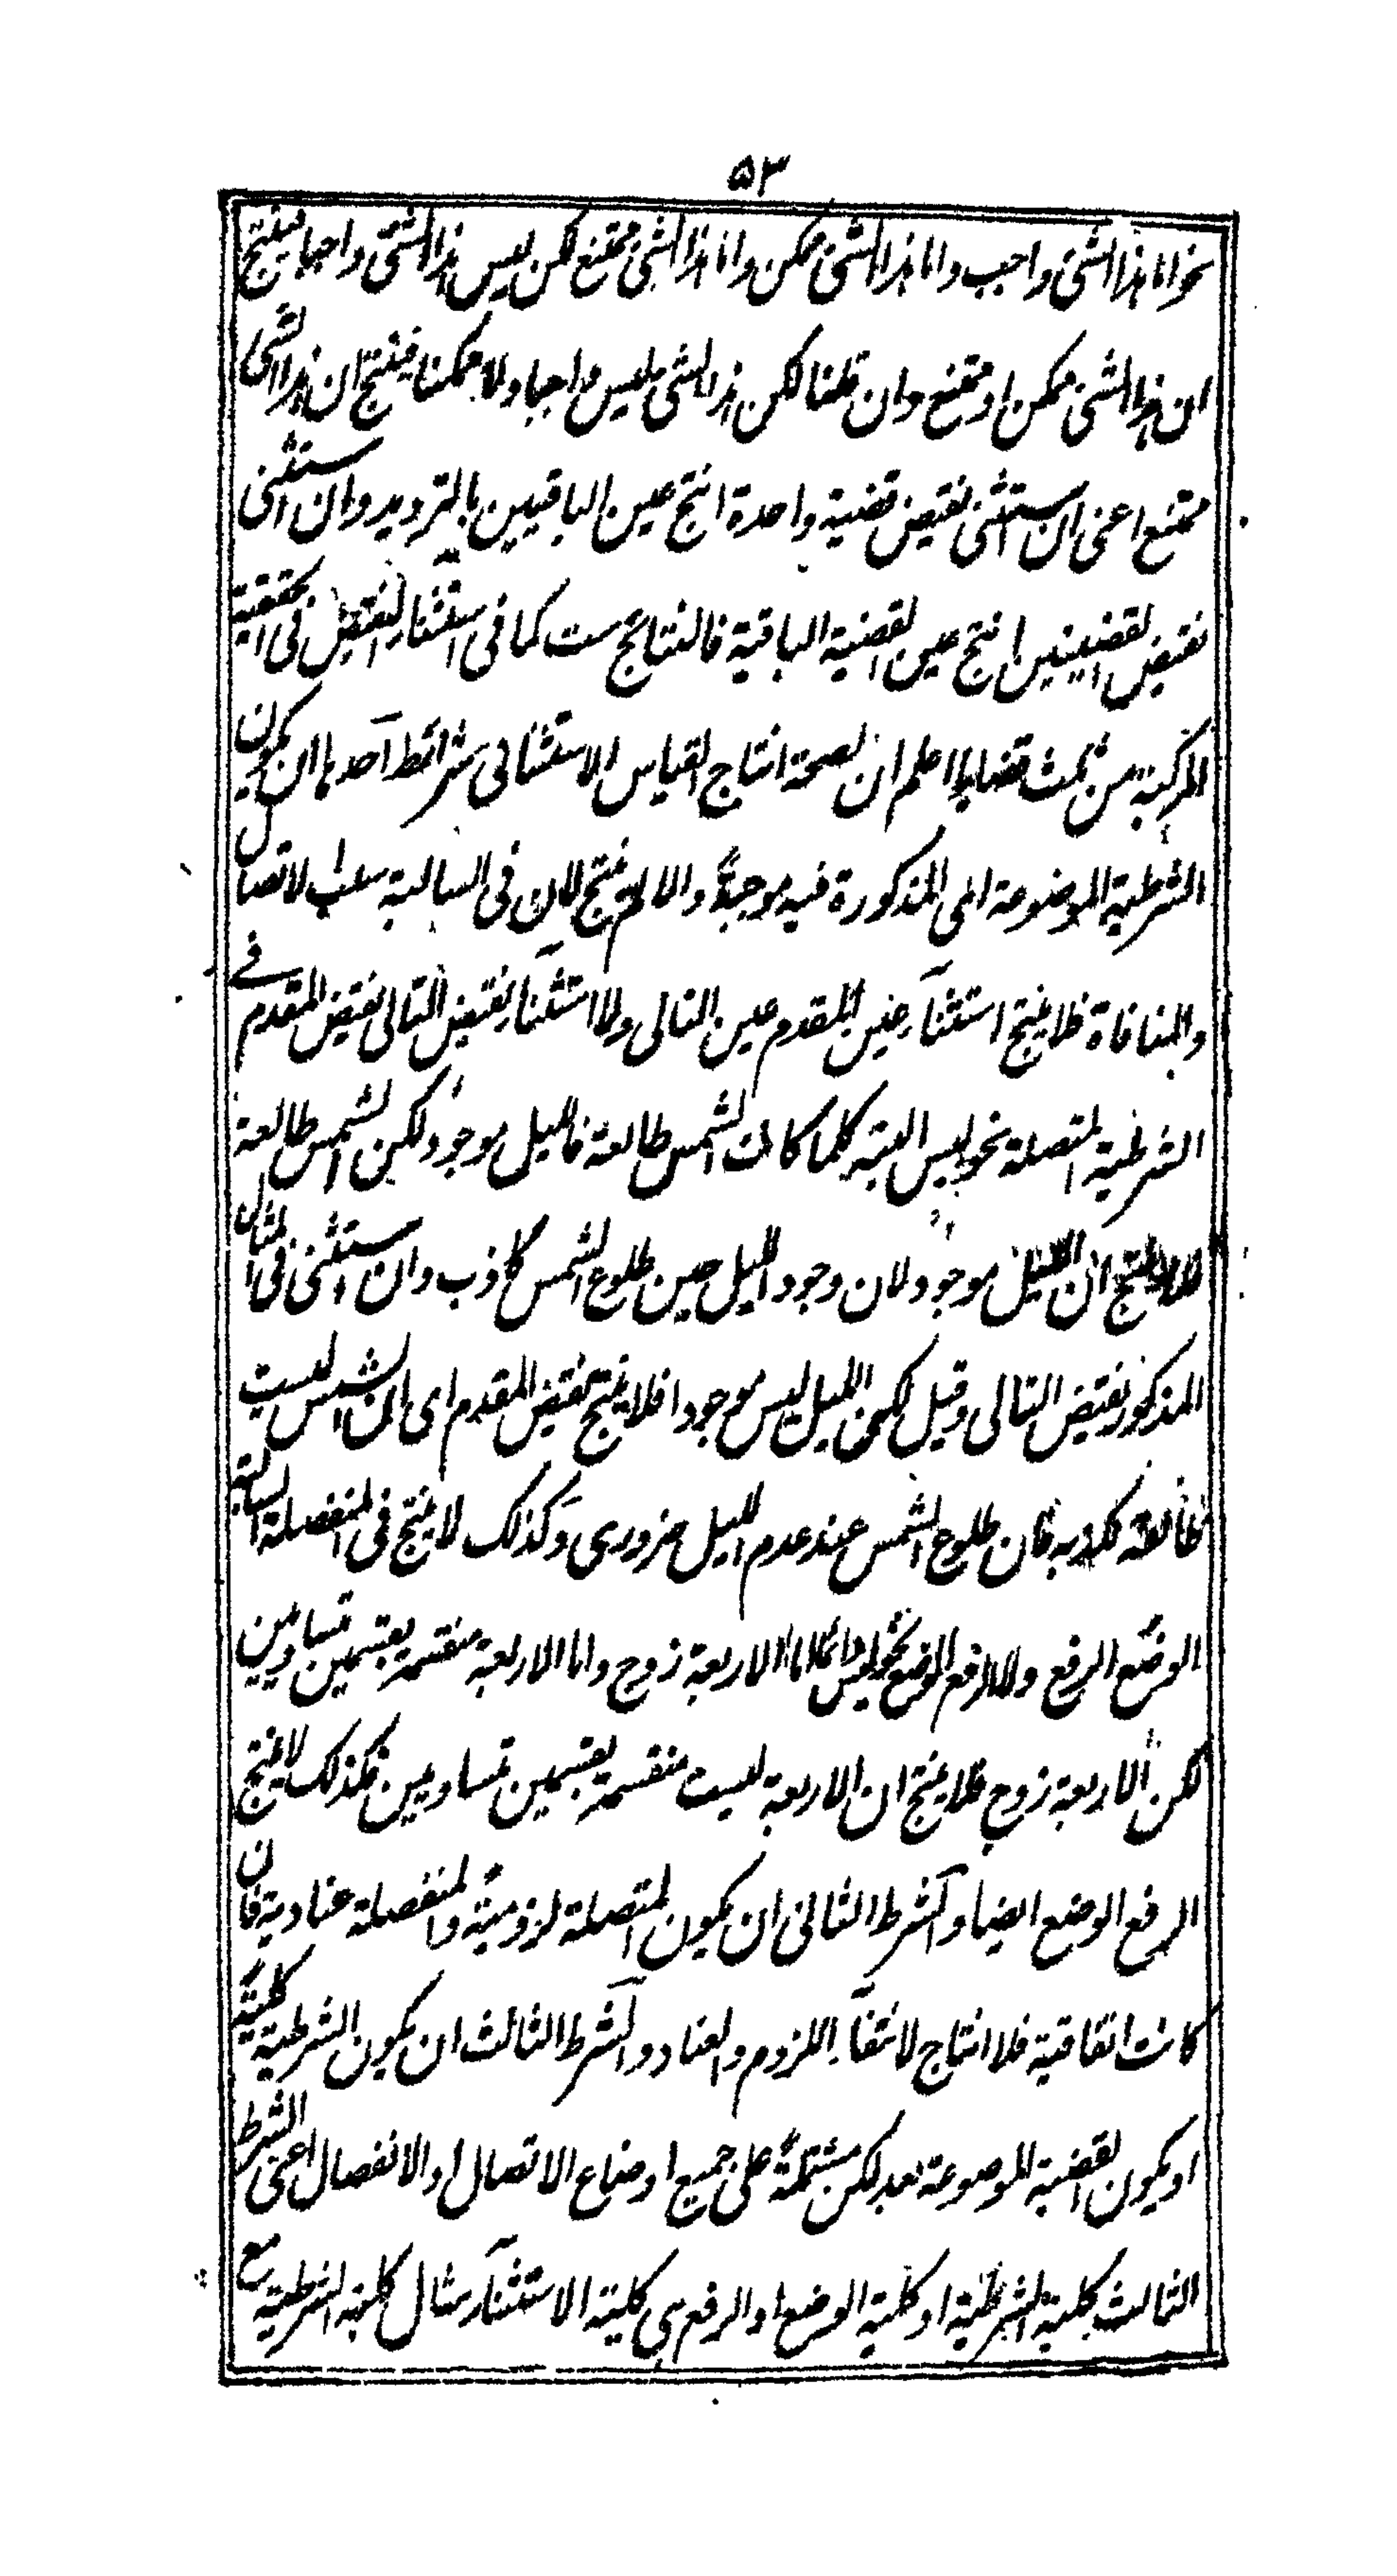 ٥٣
نحو اما هذا الشئ واجب واما هذا الشئ ممكن واما هذا الشئ ممتنع لكن ليس هذا الشئ واجبا ينتج
ان هذا الشئ ممكن او ممتنع وان قلنا لكن هذا الشئ ليس واجبا ولا ممكنا فينتج ان هذا الشئ
ممتنع اعنى ان استثنى نقيض قضية واحدة انتج عين الباقيين بالترديد وان استثنى
نقيض القضيتين انتج عين القضية الباقية فالنتائج ست كما فى استثناء النقيض فى الحقيقية
المركبة من ثلث قضايا اعلم ان لصحة انتاج القياس الاستثنائى شرائط احدها ان يكون
الشرطية الموضوعة اى المذكورة فيه موجبة والا لم ينتج لان فى السالبة سلب الاتصال
والمنافاة فلا ينتج استثناء عين المقدم عين التالى ولا استثناء نقيض التالى نقيض المقدم فى
الشرطية المتصلة نحو ليس البتة كلما كانت الشمس طالعة فالليل موجود لكن الشمس طالعة
فلا ينتج ان الليل موجود لان وجود الليل حين طلوع الشمس كاذب وان استثنى فى المثال
المذكور نقيض التالى وقيل لكن الليل ليس موجودا فلا ينتج نقيض المقدم اى ان الشمس ليست
طالعة فان طلوع الشمس عند عدم الليل ضرورى وكذلك لا ينتج فى المنفصلة السالبة
الوضع الرفع ولا الرفع الوضع نحو ليس دائما اما الاربعة زوج واما الاربعة منقسمة بقسمين متساويين
لكن الاربعة زوج فلا ينتج ان الاربعة ليست منقسمة بقسمين متساويين فكذلك لا ينتج
الرفع الوضع ايضا والشرط الثانى ان يكون المتصلة لزومية والمنفصلة عنادية فان
كانت اتفاقية فلا انتاج لانتفاء اللزوم والعناد والشرط الثالث ان يكون الشرطية كلية
او يكون القضية الموضوعة بعد لكن مشتملة على جميع اوضاع الاتصال او الانفصال اعنى الشرط
الثالث كلية الشرطية او كلية الوضع او الرفع اى كلية الاستثناء مثال كلية الشرطية مع